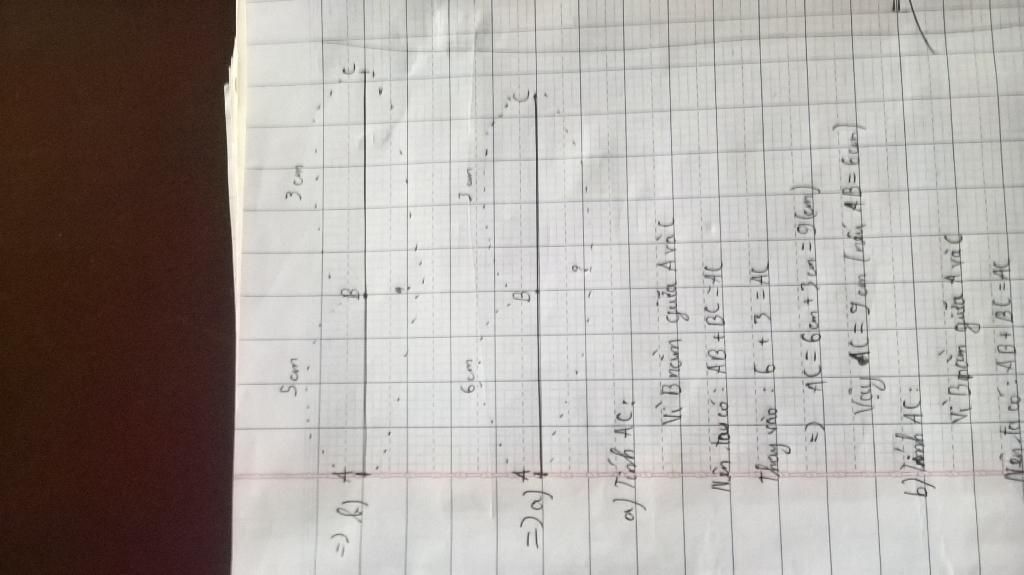 3 cm
A B C
=) b)
6 cm
A B C
?
=) a)
a) Tính AC:
Vì B nằm giữa A và C
Nên ta có: AB + BC = AC
Thay vào: 6 + 3 = AC
=) AC = 6cm + 3cm = 9(cm)
Vậy AC = 9 cm (nếu AB = 6cm)
b) Tính AC:
Vì B nằm giữa A và C
Nên ta có: AB + BC = AC